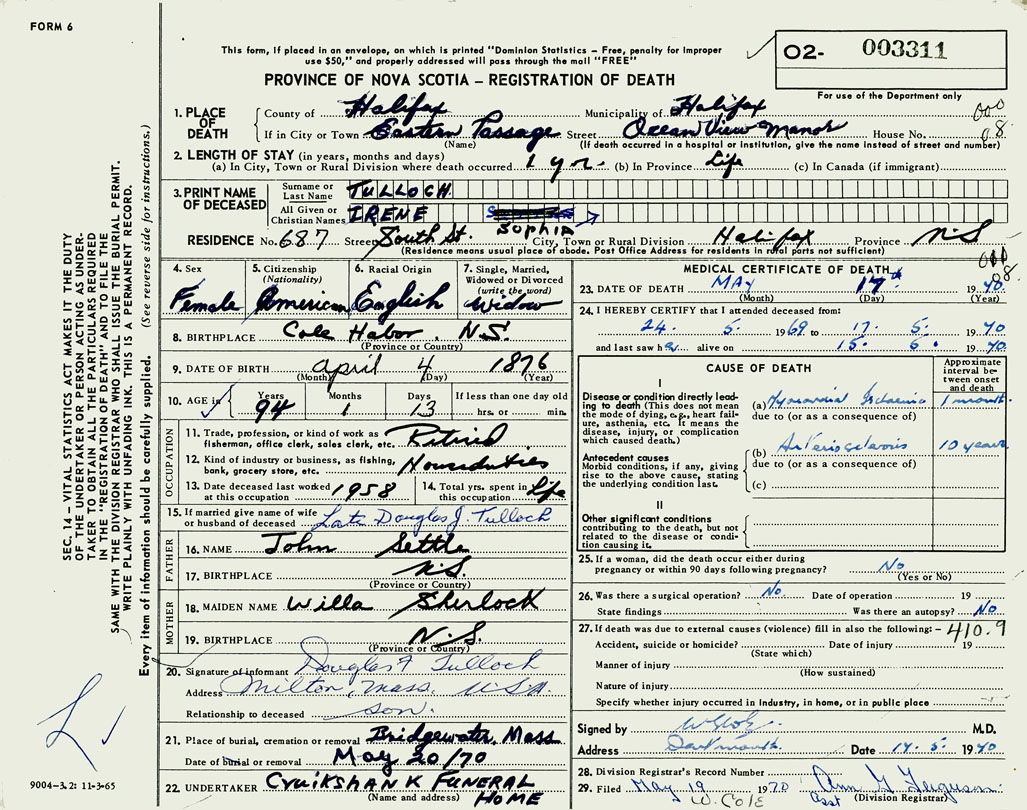 FORM 6
This form, if placed in an envelope, on which is printed "Dominion Statistics – Free, penalty for improper
use $50," and properly addressed will pass through the mail "FREE"
PROVINCE OF NOVA SCOTIA – REGISTRATION OF DEATH
02- 003311
For use of the Department only
000
08
1. PLACE OF DEATH County of Halifax Municipality of Halifax
If in City or Town Eastern Passage Street Ocean View Manor House No.
(Name) (If death occurred in a hospital or institution, give the name instead of street and number)
2. LENGTH OF STAY (in years, months and days)
(a) In City, Town or Rural Division where death occurred 1 yr. (b) In Province Life (c) In Canada (if immigrant)
3. PRINT NAME OF DECEASED Surname or Last Name TULLOCH
All Given or Christian Names IRENE SOPHIA
RESIDENCE No. 687 Street South St. City, Town or Rural Division Halifax Province N.S
(Residence means usual place of abode. Post Office Address for residents in rural parts not sufficient)
4. Sex Female
5. Citizenship (Nationality) American
6. Racial Origin English
7. Single, Married, Widowed or Divorced (write the word) Widow
8. BIRTHPLACE Cole Habor, N.S.
(Province or Country)
9. DATE OF BIRTH April 4 1876
(Month) (Day) (Year)
10. AGE in Years 94 Months 1 Days 13 If less than one day old hrs. or min.
OCCUPATION
11. Trade, profession, or kind of work as fisherman, office clerk, sales clerk, etc. Retired
12. Kind of industry or business, as fishing, bank, grocery store, etc. Houseduties
13. Date deceased last worked at this occupation 1958
14. Total yrs. spent in this occupation Life
15. If married give name of wife or husband of deceased Late Douglas J. Tulloch
FATHER
16. NAME John Settle
17. BIRTHPLACE N.S.
(Province or Country)
MOTHER
18. MAIDEN NAME Willa Sherlock
19. BIRTHPLACE N.S.
(Province or Country)
20. Signature of informant Douglas F Tulloch
Address Milton, Mass. U.S.A.
Relationship to deceased son.
21. Place of burial, cremation or removal Bridgewater, Mass
Date of burial or removal May 20/70
22. UNDERTAKER CRUIKSHANK FUNERAL HOME
(Name and address)
MEDICAL CERTIFICATE OF DEATH
000
08
23. DATE OF DEATH MAY 17th 1970.
(Month) (Day) (Year)
24. I HEREBY CERTIFY that I attended deceased from:
24. 5. 1969 to 17. 5. 1970
and last saw her alive on 15. 5. 1970.
CAUSE OF DEATH
Approximate interval between onset and death
I
Disease or condition directly leading to death (This does not mean the mode of dying, e.g., heart failure, asthenia, etc. It means the disease, injury, or complication which caused death.)
(a) Myocardial Ischaemia 1 month
due to (or as a consequence of)
Antecedent causes
Morbid conditions, if any, giving rise to the above cause, stating the underlying condition last.
(b) Arteriosclerosis 10 years
due to (or as a consequence of)
(c)
II
Other significant conditions contributing to the death, but not related to the disease or condition causing it.
25. If a woman, did the death occur either during pregnancy or within 90 days following pregnancy? No
(Yes or No)
26. Was there a surgical operation? No. Date of operation 19
State findings Was there an autopsy? No
27. If death was due to external causes (violence) fill in also the following: – 410.9
Accident, suicide or homicide? Date of injury 19
(State which)
Manner of injury
(How sustained)
Nature of injury
Specify whether injury occurred in industry, in home, or in public place
Signed by M.D.
Address Dartmouth. Date 19.5. 1970
28. Division Registrar's Record Number
29. Filed May 19 1970 Ann G Ferguson
W. Cole Asst (Division Registrar)
SEC. 14 – VITAL STATISTICS ACT MAKES IT THE DUTY
OF THE UNDERTAKER OR PERSON ACTING AS UNDER-
TAKER TO OBTAIN ALL THE PARTICULARS REQUIRED
IN THE "REGISTRATION OF DEATH" AND TO FILE THE
SAME WITH THE DIVISION REGISTRAR WHO SHALL ISSUE THE BURIAL PERMIT.
WRITE PLAINLY WITH UNFADING INK. THIS IS A PERMANENT RECORD.
Every item of information should be carefully supplied. (See reverse side for instructions.)
9004-3.2: 11-3-65